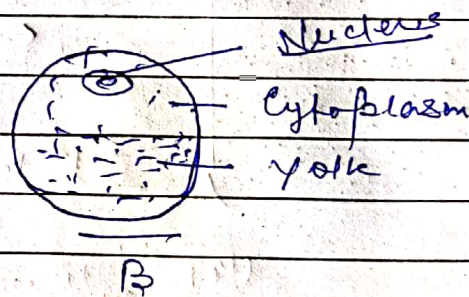 Nucleus
Cytoplasm
Yolk
B